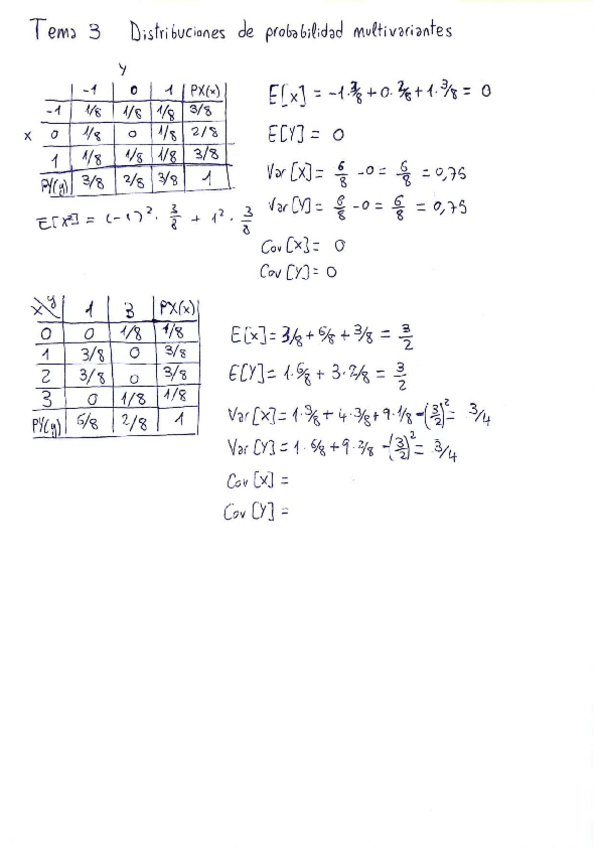 Tema 3 Distribuciones de probabilidad multivariantes
Y
-1 0 1 PX(x)
-1 1/8 1/8 1/8 3/8
x 0 1/8 0 1/8 2/8
1 1/8 1/8 1/8 3/8
PY(y) 3/8 2/8 3/8 1
E[X²] = (-1)² · 3/8 + 1² · 3/8
E[x] = -1·3/8 + 0·2/8 + 1·3/8 = 0
E[Y] = 0
Var [X] = 6/8 - 0 = 6/8 = 0,75
Var [Y] = 6/8 - 0 = 6/8 = 0,75
Cov [X] = 0
Cov [Y] = 0
x y 1 3 PX(x)
0 0 1/8 1/8
1 3/8 0 3/8
2 3/8 0 3/8
3 0 1/8 1/8
PY(y) 6/8 2/8 1
E[x] = 3/8 + 6/8 + 3/8 = 3/2
E[Y] = 1·6/8 + 3·2/8 = 3/2
Var [X] = 1·3/8 + 4·3/8 + 9·1/8 - (3/2)² = 3/4
Var [Y] = 1·6/8 + 9·2/8 - (3/2)² = 3/4
Cov [x] =
Cov [Y] =